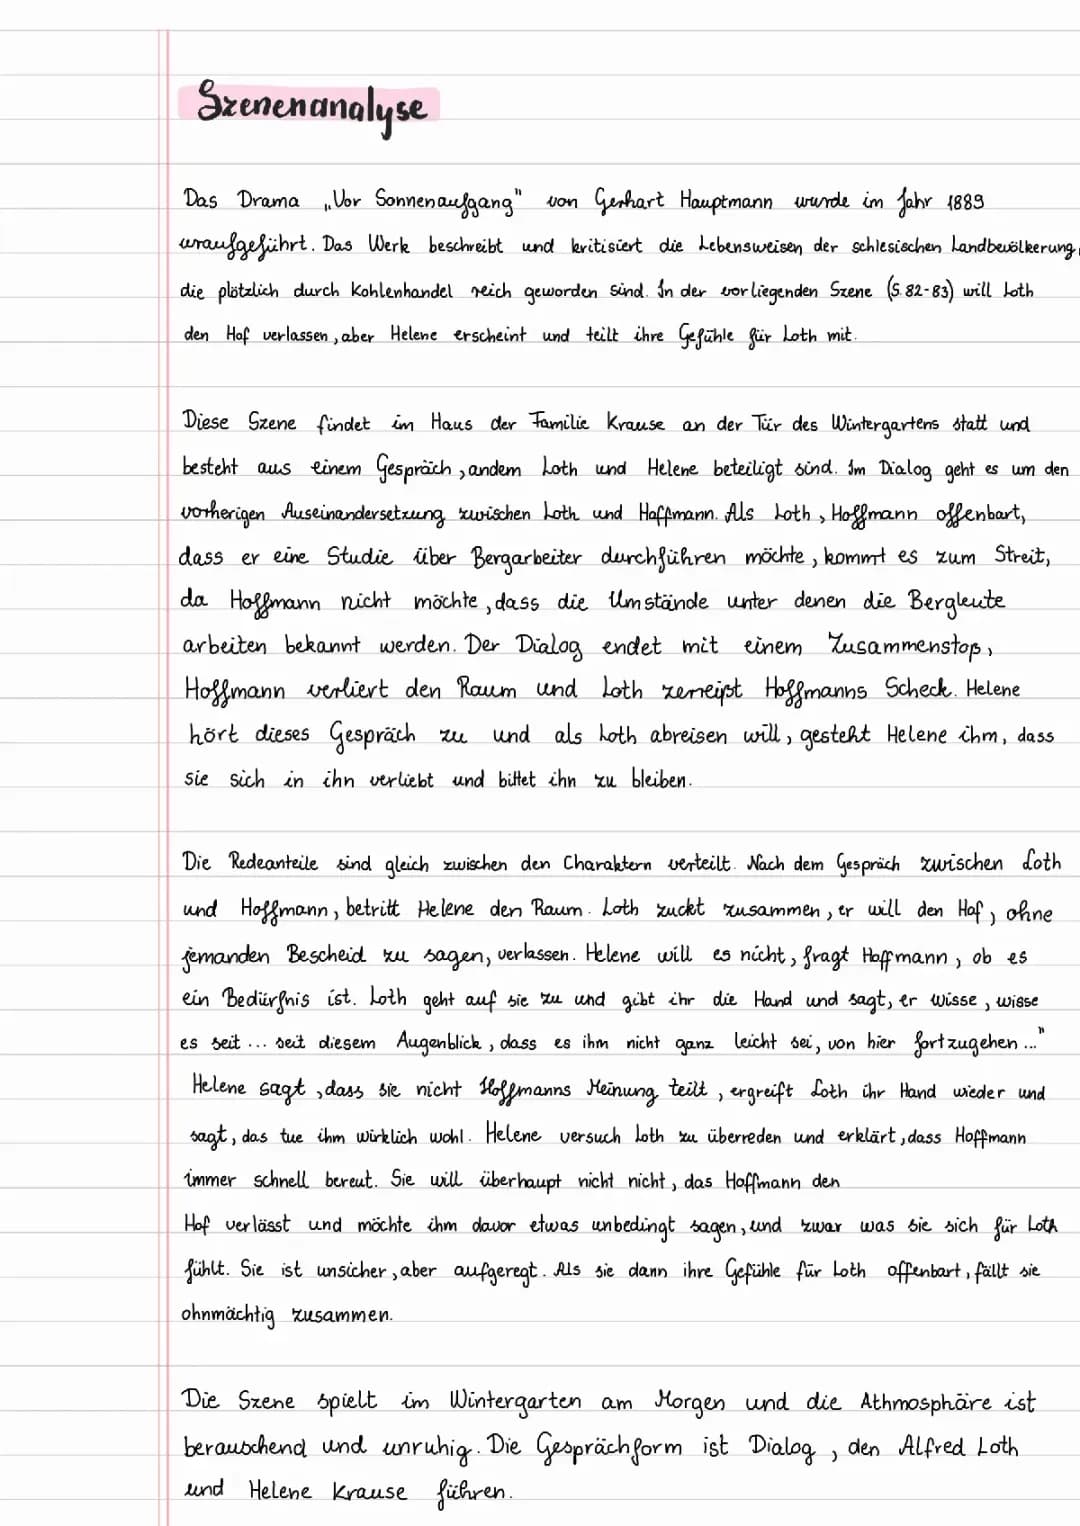 Szenenanalyse
Das Drama „Vor Sonnenaufgang" von Gerhart Hauptmann wurde im Jahr 1889
uraufgeführt. Das Werk beschreibt und kritisiert die Lebensweisen der schlesischen Landbevölkerung,
die plötzlich durch Kohlenhandel reich geworden sind. In der vorliegenden Szene (S. 82-83) will Loth
den Hof verlassen, aber Helene erscheint und teilt ihre Gefühle für Loth mit.
Diese Szene findet im Haus der Familie Krause an der Tür des Wintergartens statt und
besteht aus einem Gespräch, andem Loth und Helene beteiligt sind. Im Dialog geht es um den
vorherigen Auseinandersetzung zwischen Loth und Hoffmann. Als Loth, Hoffmann offenbart,
dass er eine Studie über Bergarbeiter durchführen möchte, kommt es zum Streit,
da Hoffmann nicht möchte, dass die Umstände unter denen die Bergleute
arbeiten bekannt werden. Der Dialog endet mit einem Zusammenstop,
Hoffmann verliert den Raum und Loth zerreißt Hoffmanns Scheck. Helene
hört dieses Gespräch zu und als Loth abreisen will, gesteht Helene ihm, dass
sie sich in ihn verliebt und bittet ihn zu bleiben.
Die Redeanteile sind gleich zwischen den Charaktern verteilt. Nach dem Gespräch zwischen Loth
und Hoffmann, betritt Helene den Raum. Loth zuckt zusammen, er will den Hof, ohne
jemanden Bescheid zu sagen, verlassen. Helene will es nicht, fragt Hoffmann, ob es
ein Bedürfnis ist. Loth geht auf sie zu und gibt ihr die Hand und sagt, er wisse, wisse
es seit ... seit diesem Augenblick, dass es ihm nicht ganz leicht sei, von hier fortzugehen ..."
Helene sagt, dass sie nicht Hoffmanns Meinung teilt, ergreift Loth ihr Hand wieder und
sagt, das tue ihm wirklich wohl. Helene versuch Loth zu überreden und erklärt, dass Hoffmann
immer schnell bereut. Sie will überhaupt nicht nicht, das Hoffmann den
Hof verlässt und möchte ihm davor etwas unbedingt sagen, und zwar was sie sich für Loth
fühlt. Sie ist unsicher, aber aufgeregt. Als sie dann ihre Gefühle für Loth offenbart, fällt sie
ohnmächtig zusammen.
Die Szene spielt im Wintergarten am Morgen und die Athmosphäre ist
berauschend und unruhig. Die Gesprächform ist Dialog, den Alfred Loth
und Helene Krause führen.